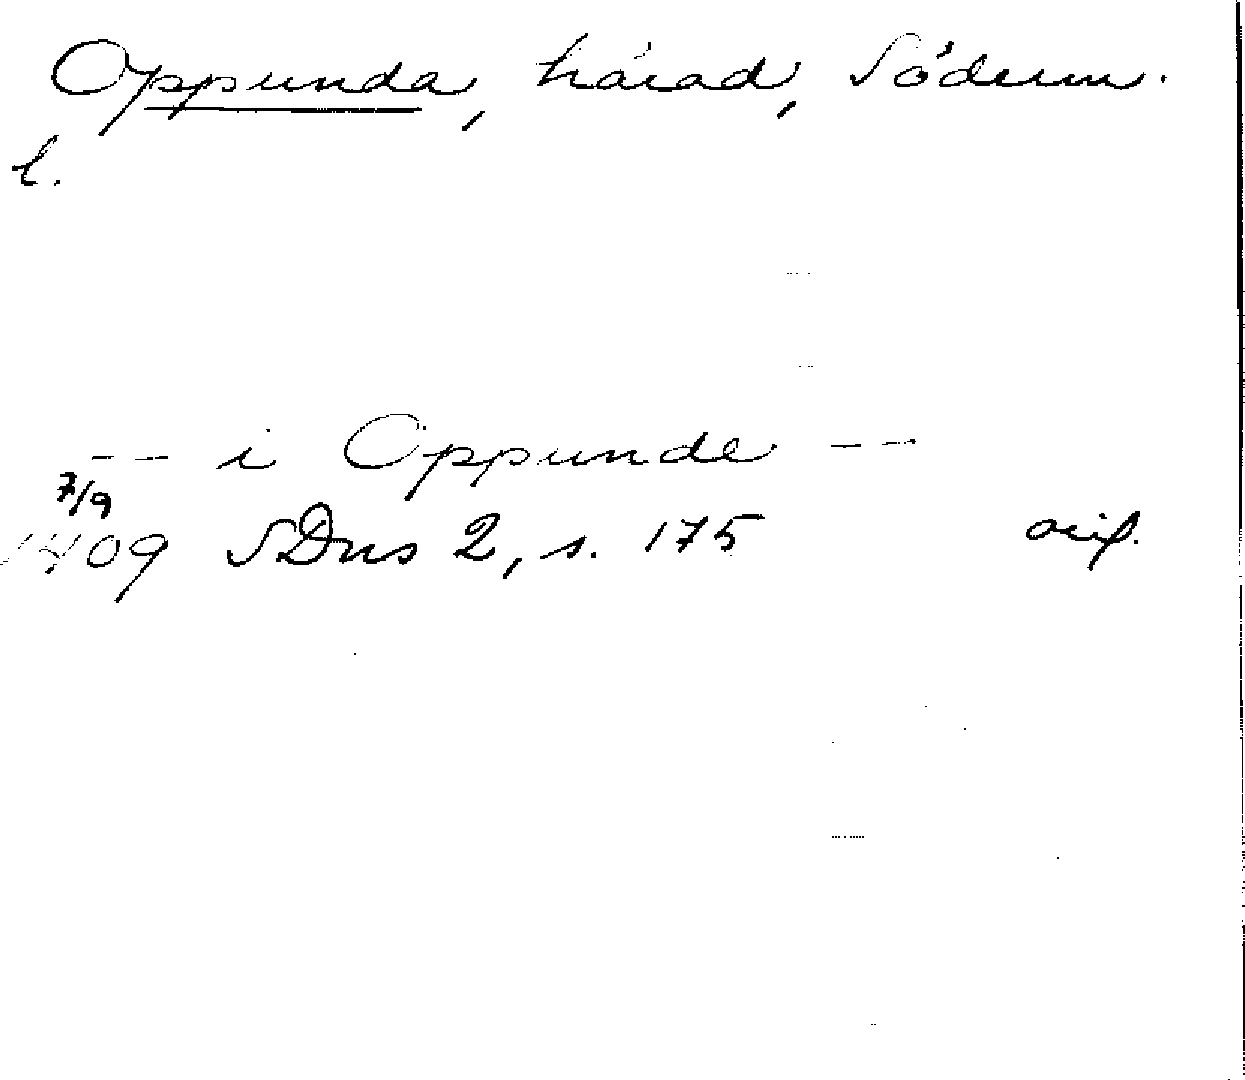 Oppunda, härad, Söderm.
l.
-- i Oppunde --
7/9
1409 SDns 2, s. 175 orig.